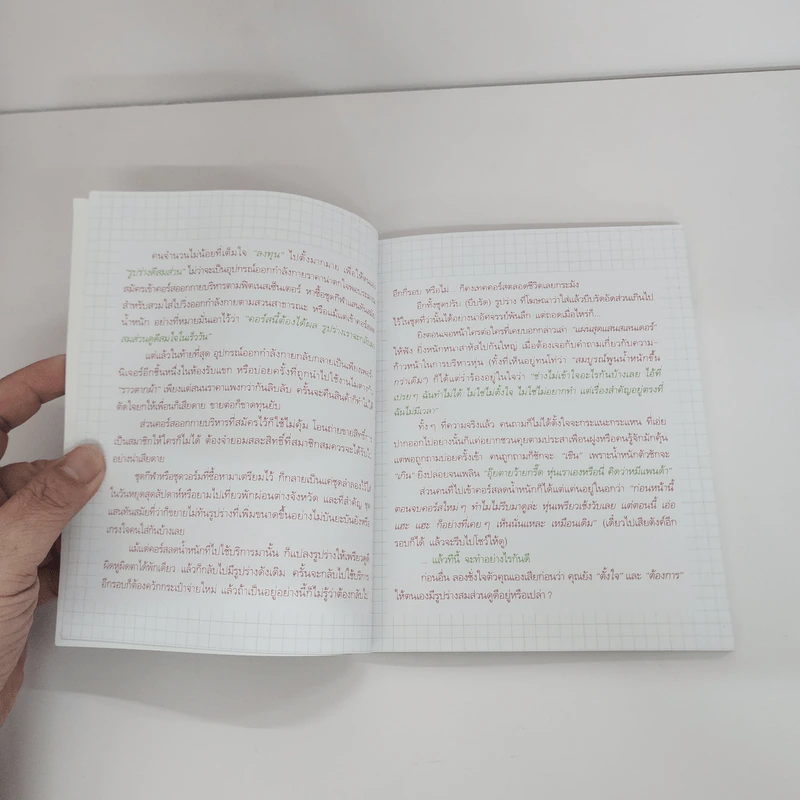 คนจำนวนไม่น้อยที่เต็มใจ "ลงทุน" ไปตั้งมากมาย เพื่อให้ตนเอง
"รูปร่างดีสมส่วน" ไม่ว่าจะเป็นอุปกรณ์ออกกำลังกายราคาน่าตกใจพอประมาณ
สมัครเข้าคอร์สออกกายบริหารตามฟิตเนสเซ็นเตอร์ หาซื้อชุดกีฬาแสนทันสมัย
สำหรับสวมใส่ไปวิ่งออกกำลังกายตามสวนสาธารณะ หรือแม้แต่เข้าคอร์สลด
น้ำหนัก อย่างที่หมายมั่นเอาไว้ว่า "คอร์สนี้ต้องได้ผล รูปร่างเราจะกลับมา
สมส่วนดูดีสมใจในเร็ววัน"
แต่แล้วในท้ายที่สุด อุปกรณ์ออกกำลังกายกลับกลายเป็นเพียงเฟอร์
นิเจอร์อีกชิ้นหนึ่งในห้องรับแขก หรือบ่อยครั้งที่ถูกนำไปใช้งานไม่ต่างกับ
"ราวตากผ้า" เพียงแต่สนนราคาแพงกว่ากันลิบลับ ครั้นจะคืนสินค้าก็ทำไม่ได้
ตัดใจยกให้เพื่อนก็เสียดาย ขายต่อก็ขาดทุนยับ
ส่วนคอร์สออกกายบริหารที่สมัครไว้ก็ใช้ไม่คุ้ม โอนถ่ายขายสิทธิ์การ
เป็นสมาชิกให้ใครก็ไม่ได้ ต้องจำยอมสละสิทธิ์ที่สมาชิกสมควรจะได้รับไป
อย่างน่าเสียดาย
ชุดกีฬาหรือชุดวอร์มที่ซื้อหามาเตรียมไว้ ก็กลายเป็นแค่ชุดลำลองใส่ได้
ในวันหยุดสุดสัปดาห์หรือยามไปเที่ยวพักผ่อนต่างจังหวัด และที่สำคัญ ชุด
แสนทันสมัยที่ว่าก็ขยายไม่ทันรูปร่างที่เพิ่มขนาดขึ้นอย่างไม่บันยะบันยังหรือ
เกรงใจคนใส่กันบ้างเลย
แม้แต่คอร์สลดน้ำหนักที่ไปใช้บริการมานั้น ก็แปลงรูปร่างให้เพรียวดูดี
ผิดหูผิดตาได้พักเดียว แล้วก็กลับไปมีรูปร่างดังเดิม ครั้นจะกลับไปใช้บริการ
อีกรอบก็ต้องควักกระเป๋าจ่ายใหม่ แล้วถ้าเป็นอยู่อย่างนี้ก็ไม่รู้ว่าต้องกลับไป
อีกกี่รอบ หรือไม่ ก็คงเทคคอร์สตลอดชีวิตเลยกระมัง
อีกทั้งชุดปรับ (บีบรัด) รูปร่าง ที่โฆษณาว่าใส่แล้วบีบรัดอัดส่วนเกินไป
ไว้ในชุดที่ว่านั้นได้อย่างน่าอัศจรรย์พันลึก แต่ถอดเมื่อไหร่ก็...
ยิ่งตอนเจอหน้าใครต่อใครที่เคยบอกกล่าวเล่า "แผนสุดแสนสมเลนเดอร์"
ให้ฟัง ยิ่งหนักหนาสาหัสไปกันใหญ่ เมื่อต้องเจอกับคำถามเกี่ยวกับความ-
ก้าวหน้าในการบริหารหุ่น (ทั้งที่เห็นอยู่ทนโท่ว่า "สมบูรณ์พูนน้ำหนักขึ้น
กว่าเดิม") ก็ได้แต่ร่ำร้องอยู่ในใจว่า "ช่างไม่เข้าใจอะไรกันบ้างเลย ไอ้ที่
เปรยๆ ฉันทำไม่ได้ ไม่ใช่ไม่ตั้งใจ ไม่ใช่ไม่อยากทำ แต่เรื่องสำคัญอยู่ตรงที่
ฉันไม่มีเวลา"
ทั้งๆ ที่ความจริงแล้ว คนถามก็ไม่ได้ตั้งใจจะกระแนะกระแหน ที่เอ่ย
ปากออกไปอย่างนั้นก็แค่อยากชวนคุยตามประสาเพื่อนฝูงหรือคนรู้จักมักคุ้น
แต่พอถูกถามบ่อยครั้งเข้า คนถูกถามก็ชักจะ "เข็น" เพราะน้ำหนักตัวชักจะ
"เกิน" ยิ่งปล่อยจนเพลิน "อุ้ยตายว้ายกรี๊ด หุ่นเราเองหรือนี่ คิดว่าหมีแพนด้า"
ส่วนคนที่ไปเข้าคอร์สลดน้ำหนักก็ได้แต่แค่นอยู่ในอกว่า "ก่อนหน้านี้
ตอนจบคอร์สใหม่ๆ ทำไมไม่รีบมาดูล่ะ หุ่นเพรียวเช้งวับเลย แต่ตอนนี้ เอ่อ
แฮะ แฮะ ก็อย่างที่เคยๆ เห็นนั่นแหละ เหมือนเดิม" (เดี๋ยวไปเสียตังค์อีก
รอบก็ได้ แล้วจะรีบไปโชว์ให้ดู)
... แล้วทีนี้ จะทำอย่างไรกันดี
ก่อนอื่น ลองชั่งใจตัวคุณเองเสียก่อนว่า คุณยัง "ตั้งใจ" และ "ต้องการ"
ให้ตนเองมีรูปร่างสมส่วนดูดีอยู่หรือเปล่า ?